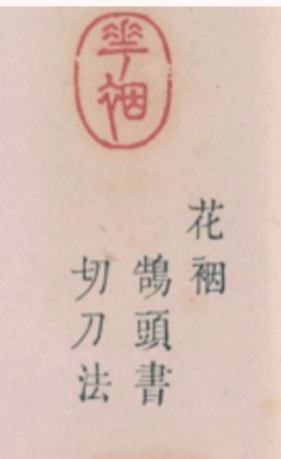 華裀
花裀
鵠頭書
切刀法